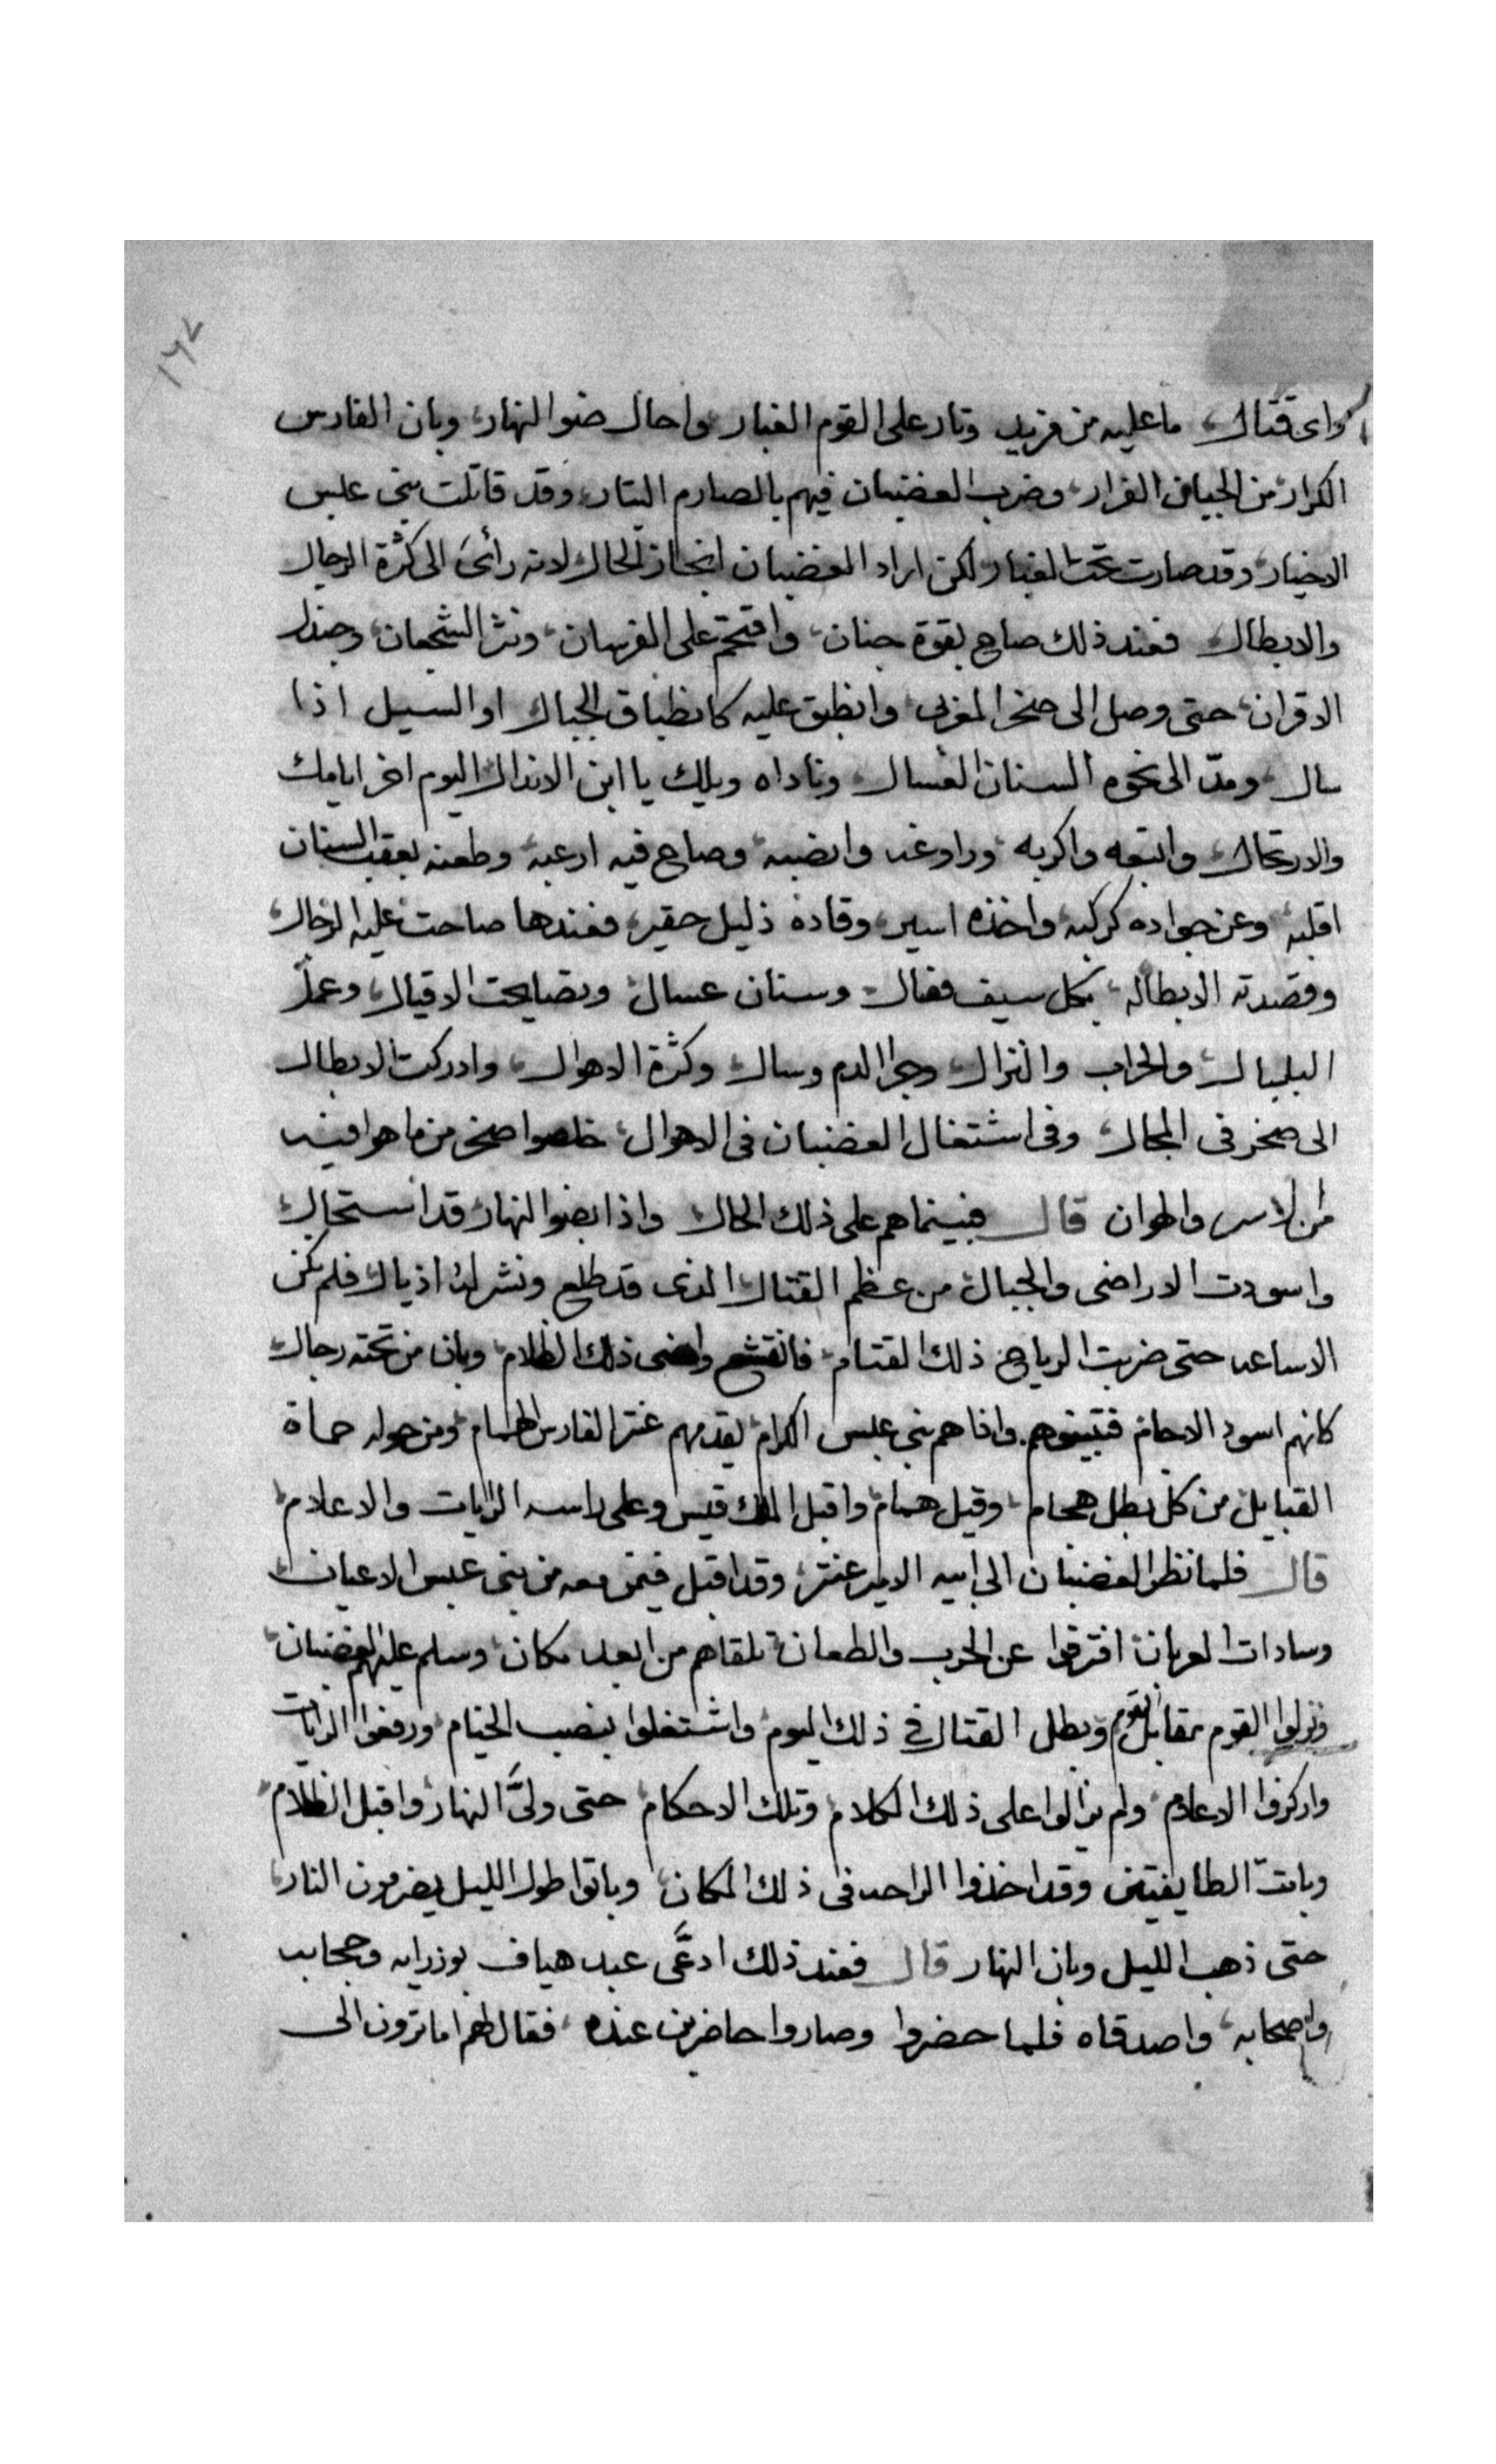 ١٦٧
واى قتال، ما عليه من مزيد وثار على القوم الغبار واحال ضوا النهار، وبان الفارس
الكرار، من الجبان الفرار، وضرب الغضبان فيهم بالصارم البتار، وقد قاتلت بنى عبس
الاخيار، وقد صارت تحت الغبار ولكن اراد الغضبان انجاز الحال لانه رائ الى كثرة الرجال
والابطال فعند ذلك صاح بقوة جنان، واقتحم على الفرسان، ونثر الشجعان، وجندل
الاقران، حتى وصل الى صخر المغربى وانطبق عليه كانطباق الجبال او السيل اذا
سال، ومدّ الى نحوه السنان العسال، وناداه ويلك يا ابن الاندال اليوم اخر ايامك
والارتحال، واتبعه واكربه، وراوغه واتضبه، وصاح فيه ارعبه، وطعنه بعقب السنان
اقلبه، وعن جواده كركبه، واخذه اسير، وقاده ذليل حقير، فعندها صاحت عليه الرجال،
وقصدته الابطال، بكل سيف فصال، وسنان عسال، وتصايحت الاقيال، وعمل
البلبال، والحراب والنزال، وجرا الدم وسال، وكثرة الاهوال، وادركت الابطال
الى صخر فى المجال، وفى اشتغال الغضبان فى الاهوال، خلصوا صخر من ما هوا فيه
من الاسر والهوان قال فبينما هم على ذلك الحال واذا بضوا النهار قد استحال
واسودت الاراضى والجبال، من عظم القتال الذى قد طلع ونشر له اذيال، فلم تكن
الا ساعه حتى ضربت الرياح ذلك القتام، فانقشع وامضى ذلك الظلام، وبان من تحته رجال
كانهم اسود الاجام، فتبينوهم واذا هم بنى عبس الكرام، يقدمهم عنتر الفارس الهمام، ومن حوله حماة
القبايل، من كل بطل هجام، وقيل همام، واقبل الملك قيس وعلى راسه الرايات والاعلام،
قال فلما نظر الغضبان الى ابيه الامير عنتر، وقد اقبل فيمن معه من بنى عبس الاعيان،
وسادات العربان، افترقوا عن الحرب والطعان، تلقاهم من ابعد مكان، وسلم عليهم الغضبان،
ونزلوا القوم بمقابل القوم وبطل القتال فى ذلك اليوم، واشتغلوا بنصب الخيام، ورفعوا الرايات
واركزوا الاعلام، ولم يزالوا على ذلك الكلام، وتلك الاحكام، حتى ولىّ النهار، واقبل الظلام،
وباتت الطايفتين وقد اخذوا الراحه فى ذلك المكان، وباتوا طول الليل يضرمون النار،
حتى ذهب الليل وبان النهار قال فعند ذلك ادعّى عبد هياف بوزرايه وحجابه
واصحابه، واصدقاه فلما حضروا وصاروا حاضرين عنده، فقال لهم اما ترون الى